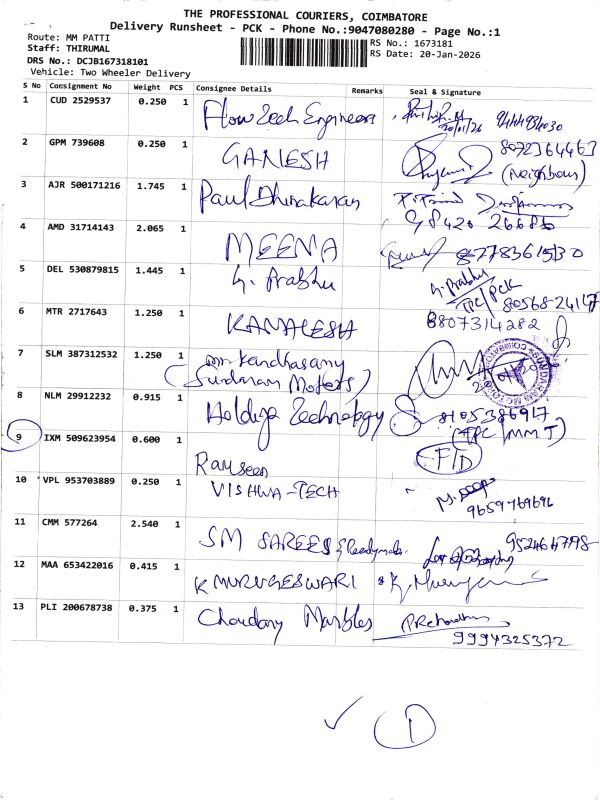 THE PROFESSIONAL COURIERS, COIMBATORE
Delivery Runsheet - PCK - Phone No.:9047080280 - Page No.:1
Route: MM PATTI
RS No.: 1673181
Staff: THIRUMAL
RS Date: 20-Jan-2026
DRS No.: DCJB167318101
Vehicle: Two Wheeler Delivery
S No Consignment No Weight PCS Consignee Details Remarks Seal & Signature
1 CUD 2529537 0.250 1 Flow Tech Engineers 20/01/26
2 GPM 739608 0.250 1 GANESH 8072364463
(Neighbour)
3 AJR 500171216 1.745 1 Paul Dhinakaran
98420 26686
4 AMD 31714143 2.065 1 MEENA 8778361530
5 DEL 530879815 1.445 1 G. Prabhu G. Prabhu
TPC/PCK 80568-24147
6 MTR 2717643 1.250 1 KAMALESH 8807314282
7 SLM 387312532 1.250 1 Mr. Kandhasamy
(Sundaram Motors)
8 NLM 29912232 0.915 1 Technology 8105386917
(TPC (MMT)
9 IXM 509623954 0.600 1 F/D
10 VPL 953703889 0.250 1 VISHWA-TECH
9659769696
11 CMM 577264 2.540 1 SM SAREES & Readymades 9524647798
12 MAA 653422016 0.415 1 K MURUGESWARI
13 PLI 200678738 0.375 1 Choudary Marbles
9994325372